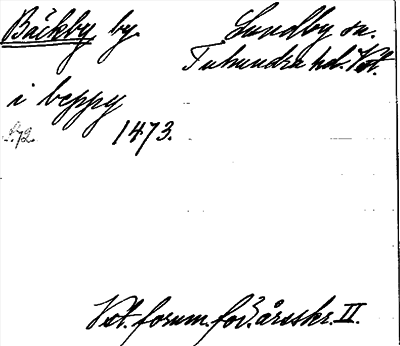 Bäckby by. Lundby sn.
Tuhundra hd. Vstl.
i beppy
s. 72. 1473.
Vst. fornm. för. årsskr. II.